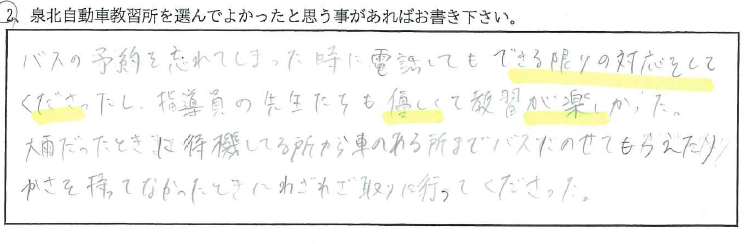 2, 泉北自動車教習所を選んでよかったと思う事があればお書き下さい。
バスの予約を忘れてしまった時に電話してもできる限りの対応をして
くださったし、指導員の先生たちも優しくて教習が楽しかった。
大雨だったときは待機してる所から車のある所までバスにのせてもらえたり
かさを持ってなかったときにわざわざ取りに行ってくださった。